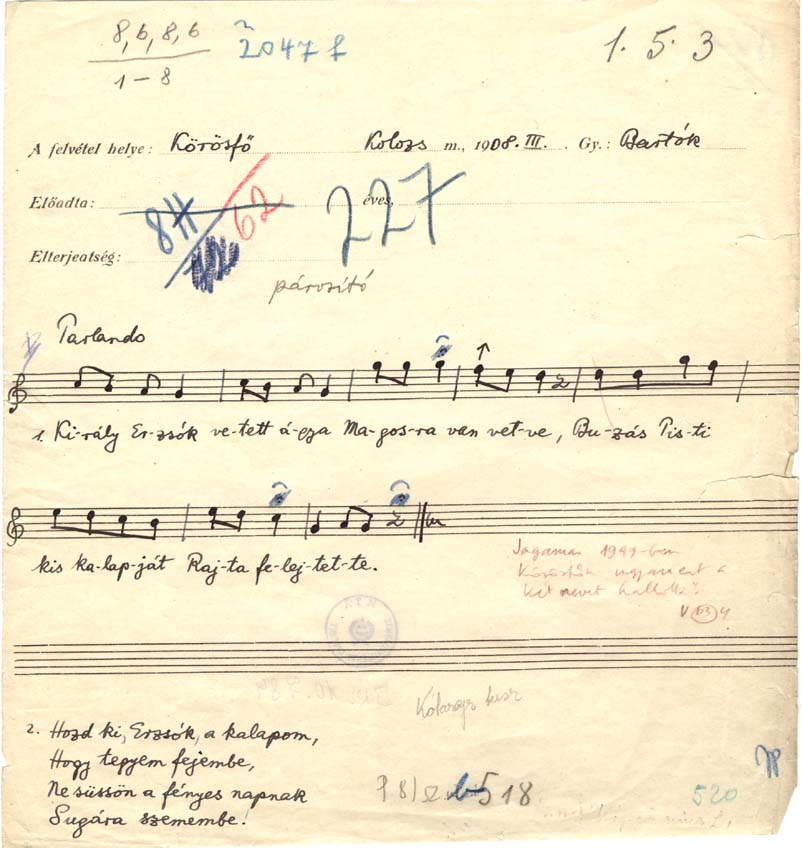 8, 6, 8, 6
1-8
2047 f
1. 5. 3
A felvétel helye: Körösfő Kolozs m., 1908. III. Gy.: Bartók
Előadta: éves,
8
62
227
Elterjedtség:
párosító
Parlando
1. Ki-rály Er-zsók ve-tett á-gya Ma-gos-ra van vet-ve, Bu-zás Pis-ti
kis ka-lap-ját Raj-ta fe-lej-tet-te.
Jagamas 1949-ben
2. Hozd ki, Erzsók, a kalapom,
Hogy tegyem fejembe,
Ne süssön a fényes napnak
Sugára szemembe!
518
520